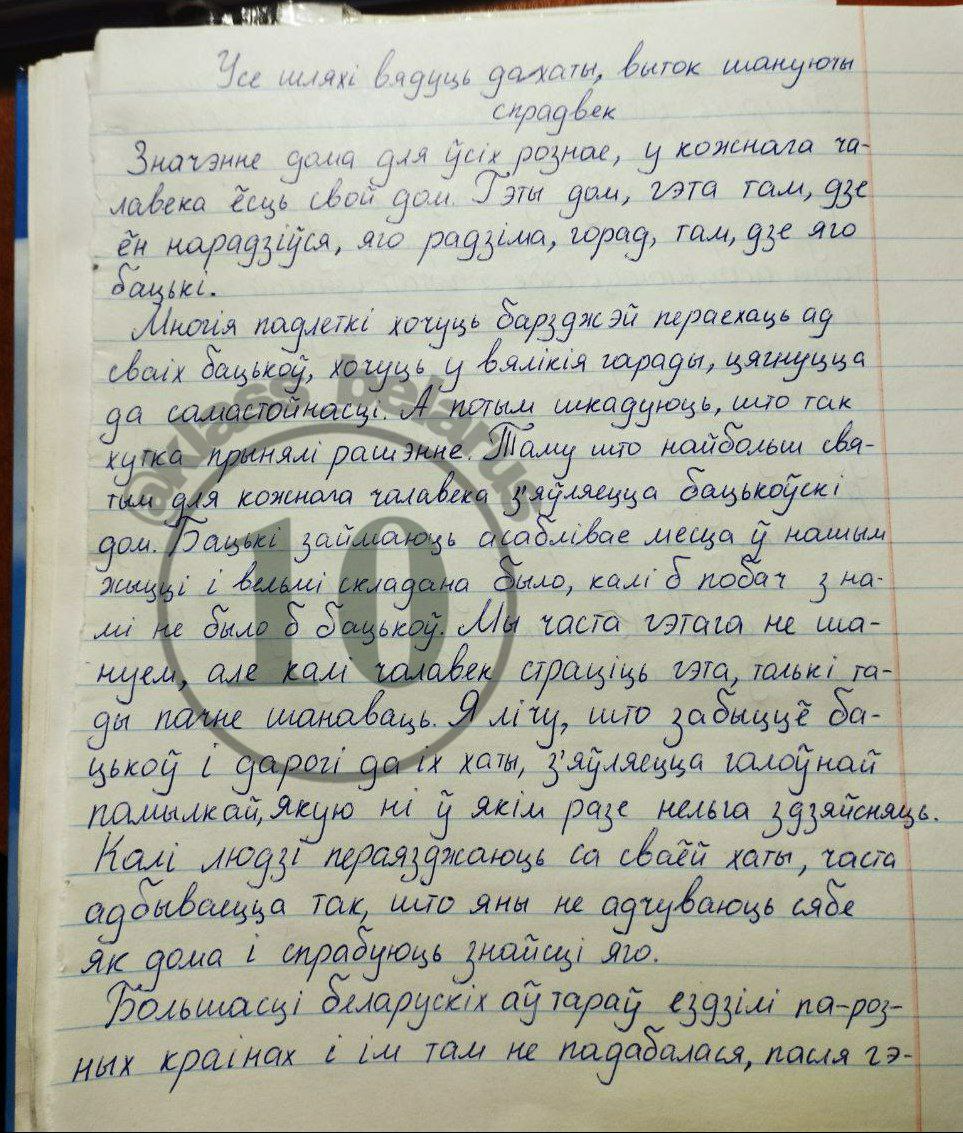 Усе шляхі вядуць да хаты, выток шануючы
спрадвек
Значэнне дома для ўсіх рознае, у кожнага ча-
лавека ёсць свой дом. Гэты дом, гэта там, дзе
ён нарадзіўся, яго радзіма, горад, там, дзе яго
бацькі.
Многія падлеткі хочуць барзджэй пераехаць ад
сваіх бацькоў, хочуць у вялікія гарады, цягнуцца
да самастойнасці. А потым шкадуюць, што так
хутка прынялі рашэнне. Таму што найбольш свя-
тым для кожнага чалавека з'яўляецца бацькоўскі
дом. Бацькі займаюць асаблівае месца ў нашым
жыцці і вельмі складана было, калі б побач з на-
мі не было б бацькоў. Мы часта гэтага не ша-
нуем, але калі чалавек страціць гэта, толькі та-
ды пачне шанаваць. Я лічу, што забыццё ба-
цькоў і дарогі да іх хаты, з'яўляецца галоўнай
памылкай, якую ні ў якім разе нельга здзяйсняць.
Калі людзі пераязджаюць са сваёй хаты, часта
адбываецца так, што яны не адчуваюць сябе
як дома і спрабуюць знайсці яго.
Большасці беларускіх аўтараў ездзілі па-роз-
ных краінах і ім там не падабалася, пасля гэ-
@klass_belarus
10